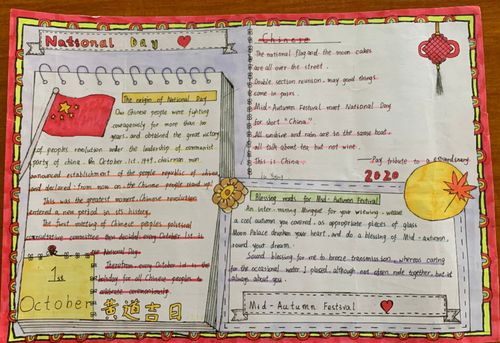 National Day
The origin of National Day
Our Chinese people were fighting
courageously for more than 100
years, and obtained the great victory
of people's revolution under the leadership of communist
party of china. On October.1st.1949, chairman mao
announced establishment of the people republic of china
and declared: from now on the Chinese people stand up!
This was the greatest momen Chinese revolution
entered a new period in its history.
The first meeting of Chinese people's political
consultative committee then decided every October 1st is
the National Day.
Therefore every October 1st is the
holiday for all Chinese peoples
celebrate ceremoniously
1st
October
黄道吉日
Chinese
The national flag and the moon cakes
are all over the street.
Double section reunion, may good things
come in pairs.
Mid-Autumn Festival meet National Day
for short "China".
All sunshine and rain are in the same boat,
all talk about tea but not wine.
This is China
Pay tribute to
2020
Blessing words for Mid-Autumn Festival
An inter-mixing Mugget for your wishing - weave
a cool autumn you covered, as appropriate places of glass
Moon Palace drunken your heart, and do a blessing of Mid-Autumn,
round your dream.
Sound blessing for me to breeze transmission, whereas caring
for the occasional water I placed, although not often role together, but at
always about you.
Mid-Autumn Festival